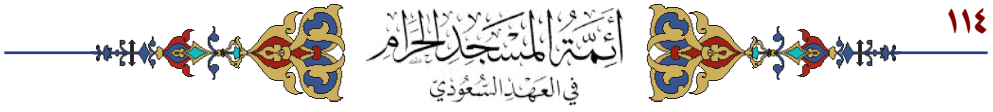 ١١٤
أَئِمَّةُ المَسْجِدِ الحَرَامِ
فِي العَهْدِ السُّعُودِيّ